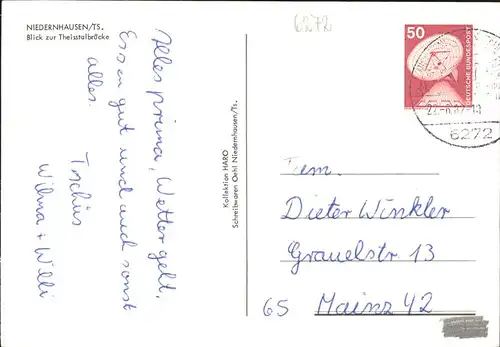 NIEDERNHAUSEN/TS.
Blick zur Theisstalbrücke
Alles prima, Wetter gelt.
Essen gut und auch sonst
alles.
Tschüs
Wilma + Willi
Kollektion HARO
Schreibwaren Oehl Niedernhausen/Ts.
6272
50
DEUTSCHE BUNDESPOST
6272
Fam.
Dieter Winkler
Grauelstr 13
65 Mainz 42